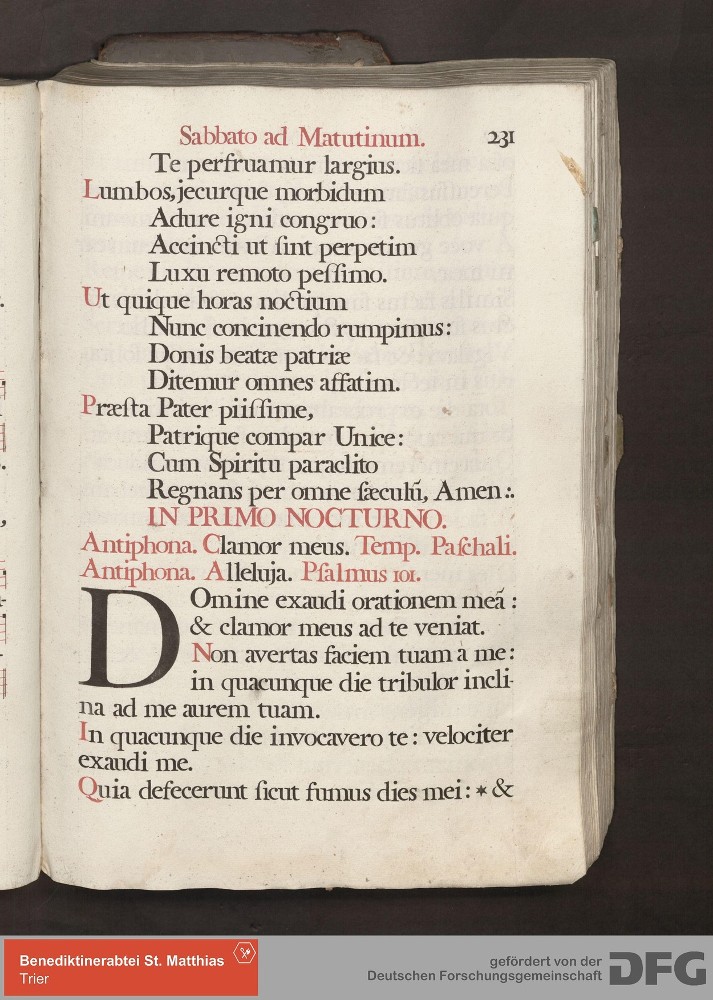 Sabbato ad Matutinum. 231
Te perfruamur largius.
Lumbos, jecurque morbidum
Adure igni congruo:
Accincti ut ſint perpetim
Luxu remoto peſſimo.
Ut quique horas noctium
Nunc concinendo rumpimus:
Donis beatæ patriæ
Ditemur omnes affatim.
Præſta Pater piiſſime,
Patrique compar Unice:
Cum Spiritu paraclito
Regnans per omne ſæculũ, Amen:.
IN PRIMO NOCTURNO.
Antiphona. Clamor meus. Temp. Paſchali.
Antiphona. Alleluja. Pſalmus 101.
Domine exaudi orationem meã:
& clamor meus ad te veniat.
Non avertas faciem tuam à me:
in quacunque die tribulor incli-
na ad me aurem tuam.
In quacunque die invocavero te: velociter
exaudi me.
Quia defecerunt ſicut fumus dies mei: * &
Benediktinerabtei St. Matthias
Trier
gefördert von der
Deutschen Forschungsgemeinschaft
DFG